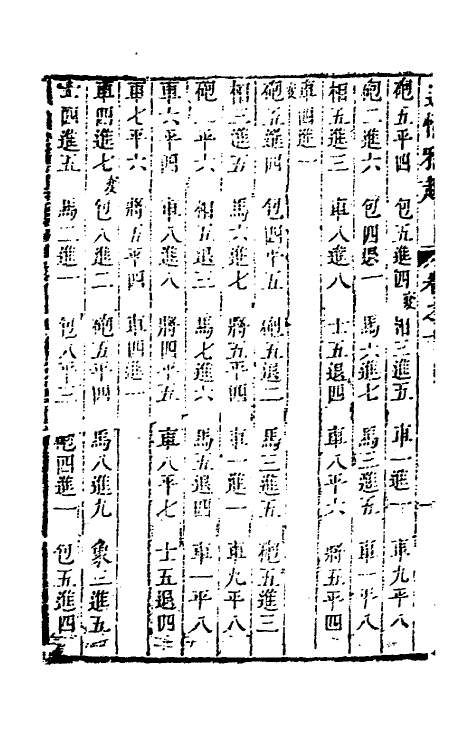 適情雅趣 卷之十
砲五平四 包五進四 變 相三進五 車一進一 車九平八
砲二進六 包四退一 馬六進七 馬三進五 車一平八
相五進三 車八進八 士五退四 車八平六 將五平四
車四進一
變 砲五進四 包四平五 砲五退二 馬三進五 砲五進三
相三進五 馬六進七 將五平四 車一進一 車九平八
砲一平六 相五退三 馬七進六 馬五退四 車一平八
車六平四 車八進八 將四平五 車八平七 士五退四
車七平六 將五平四 車四進一
車四進七 變 包八進二 砲五平四 馬八進九 象三進五
士四進五 馬二進一 包八平三 砲四進一 包五進四